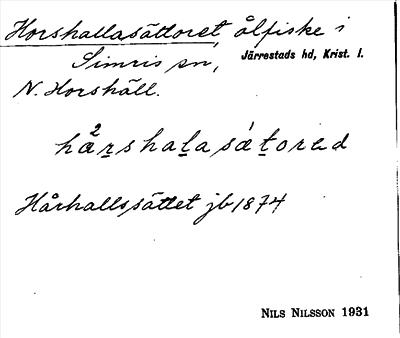 Horshallasättoret, ålfiske i
Simris sn, Järrestads hd, Krist. l.
N. Horshäll.
hårshalasátored
Hårhallssättet jb 1874
NILS NILSSON 1931